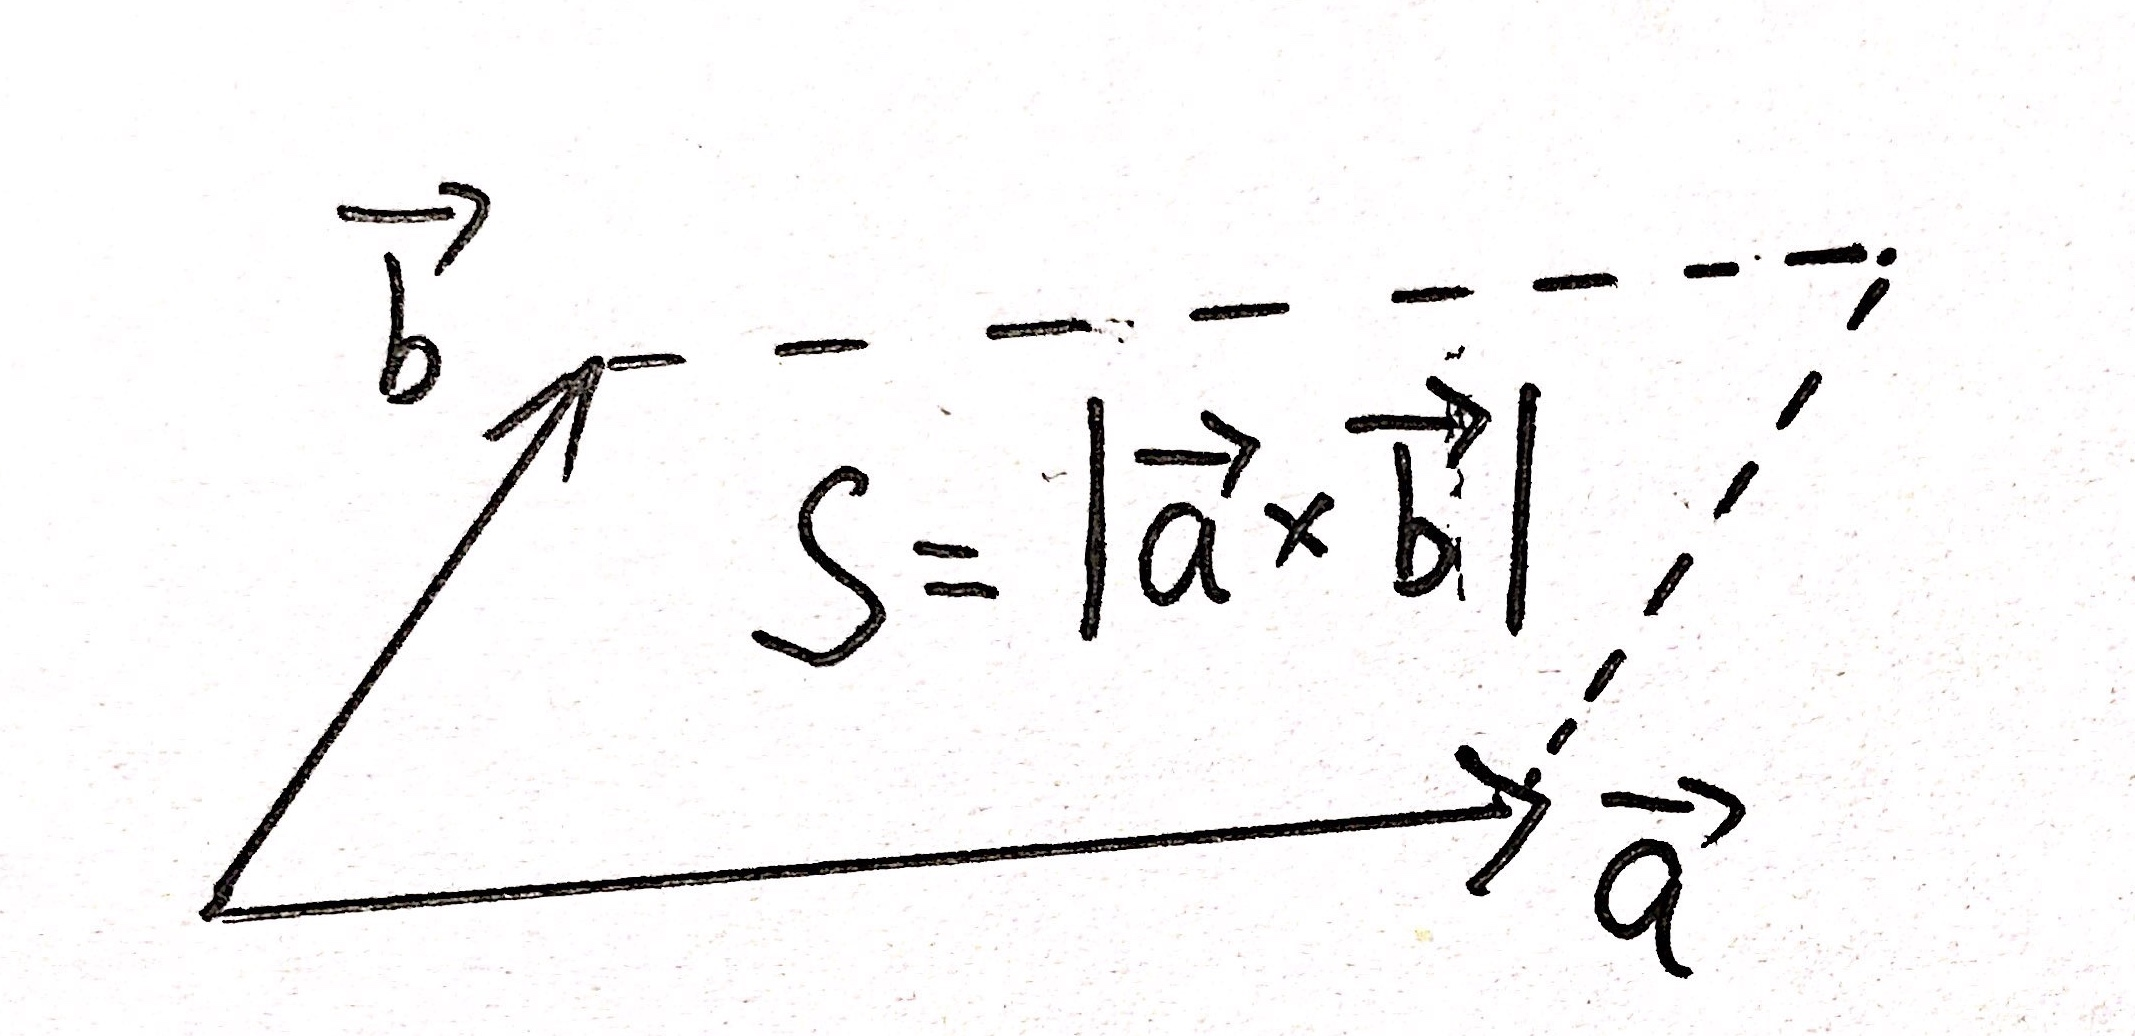 b⃗
S = |a⃗ × b⃗|
a⃗